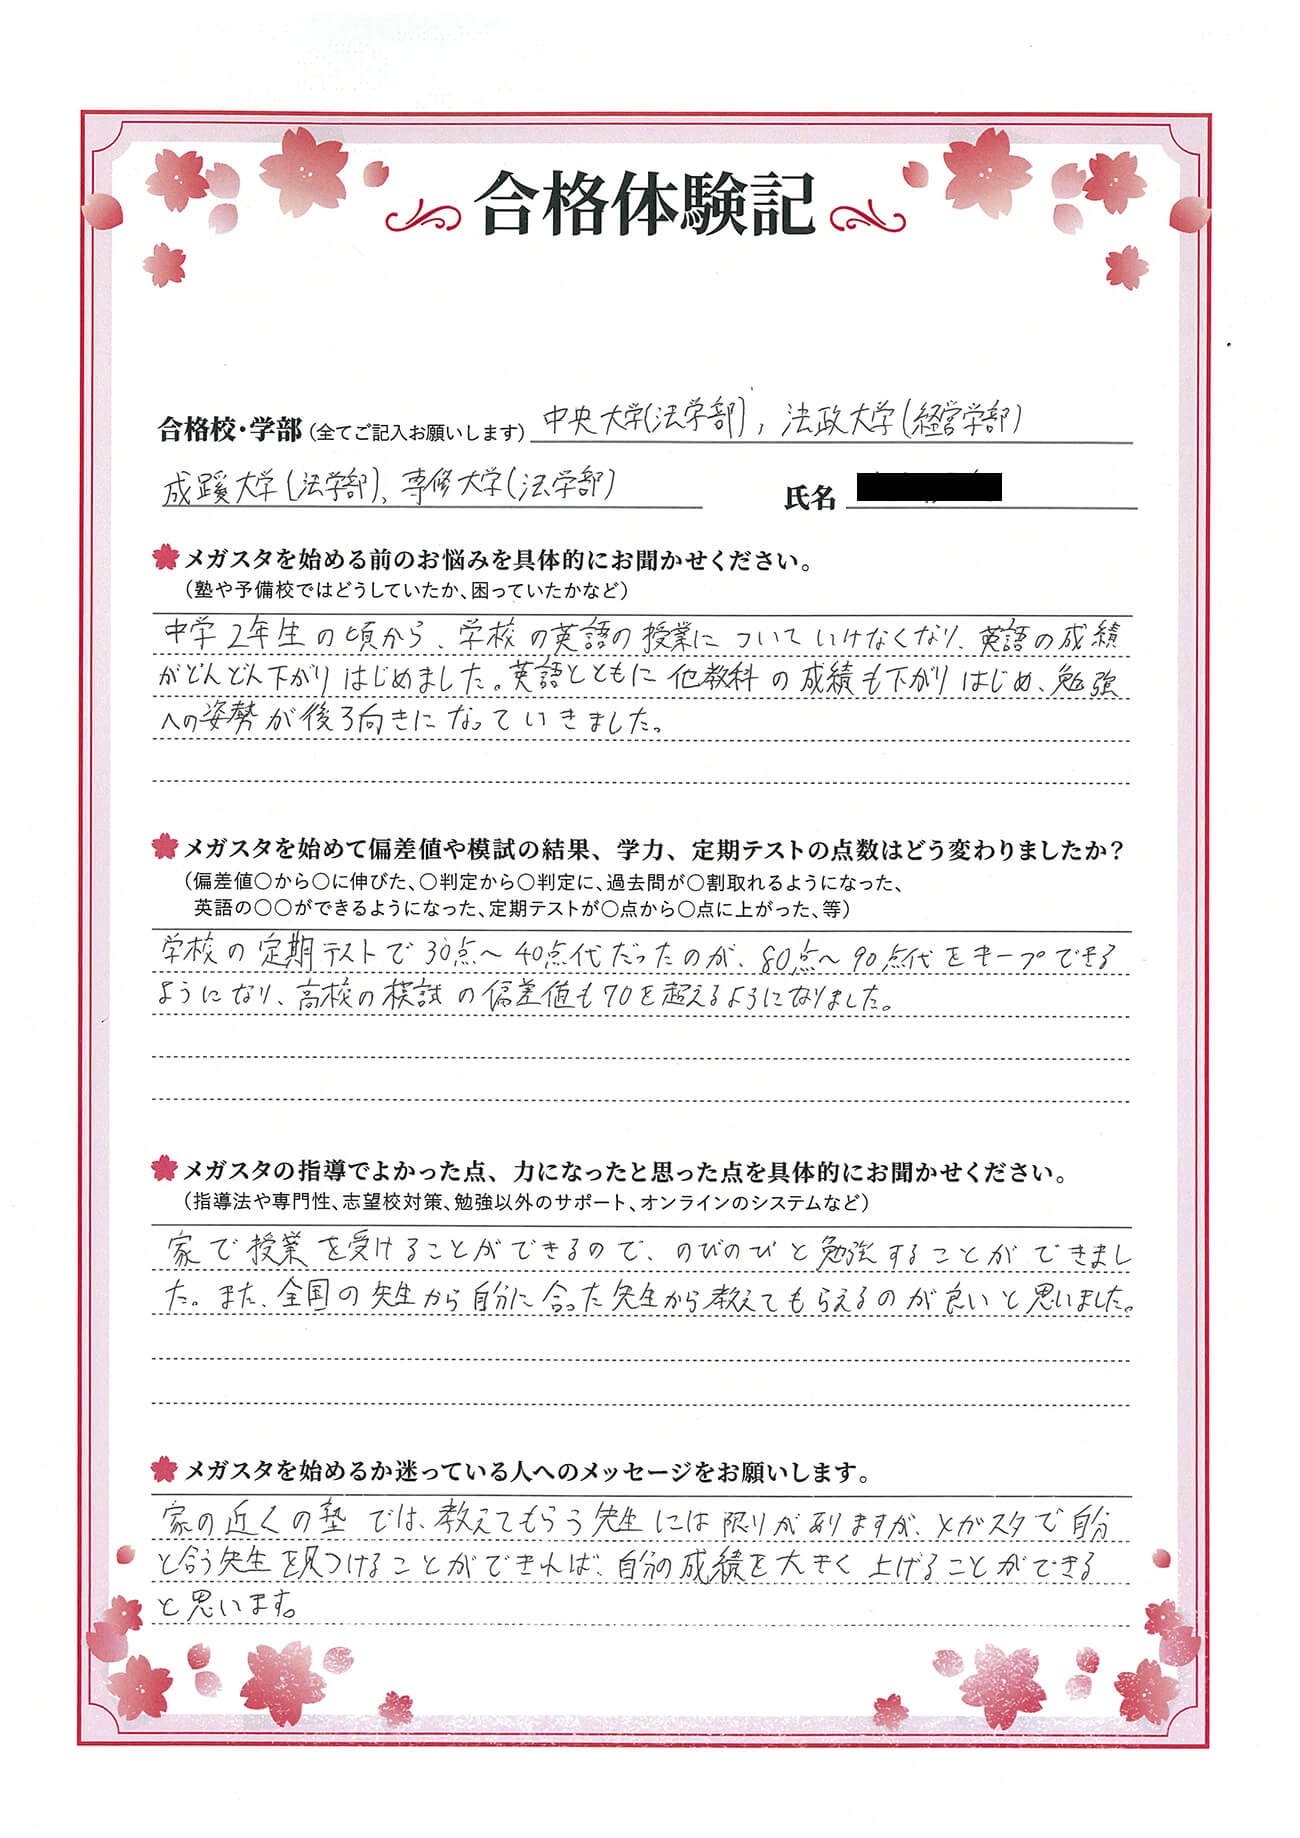 合格体験記
合格校・学部(全てご記入お願いします) 中央大学(法学部), 法政大学(経営学部)
成蹊大学(法学部), 専修大学(法学部) 氏名
メガスタを始める前のお悩みを具体的にお聞かせください。
(塾や予備校ではどうしていたか、困っていたかなど)
中学2年生の頃から、学校の英語の授業についていけなくなり、英語の成績
がどんどん下がりはじめました。英語とともに他教科の成績も下がりはじめ、勉強
への姿勢が後ろ向きになっていきました。
メガスタを始めて偏差値や模試の結果、学力、定期テストの点数はどう変わりましたか?
(偏差値○から○に伸びた、○判定から○判定に、過去問が○割取れるようになった、
英語の○○ができるようになった、定期テストが○点から○点に上がった、等)
学校の定期テストで30点〜40点代だったのが、80点〜90点代をキープできる
ようになり、高校の模試の偏差値も70を超えるようになりました。
メガスタの指導でよかった点、力になったと思った点を具体的にお聞かせください。
(指導法や専門性、志望校対策、勉強以外のサポート、オンラインのシステムなど)
家で授業を受けることができるので、のびのびと勉強することができまし
た。また、全国の先生から自分に合った先生から教えてもらえるのが良いと思いました。
メガスタを始めるか迷っている人へのメッセージをお願いします。
家の近くの塾では、教えてもらう先生には限りがありますが、メガスタで自分
と合う先生を見つけることができれば、自分の成績を大きく上げることができる
と思います。